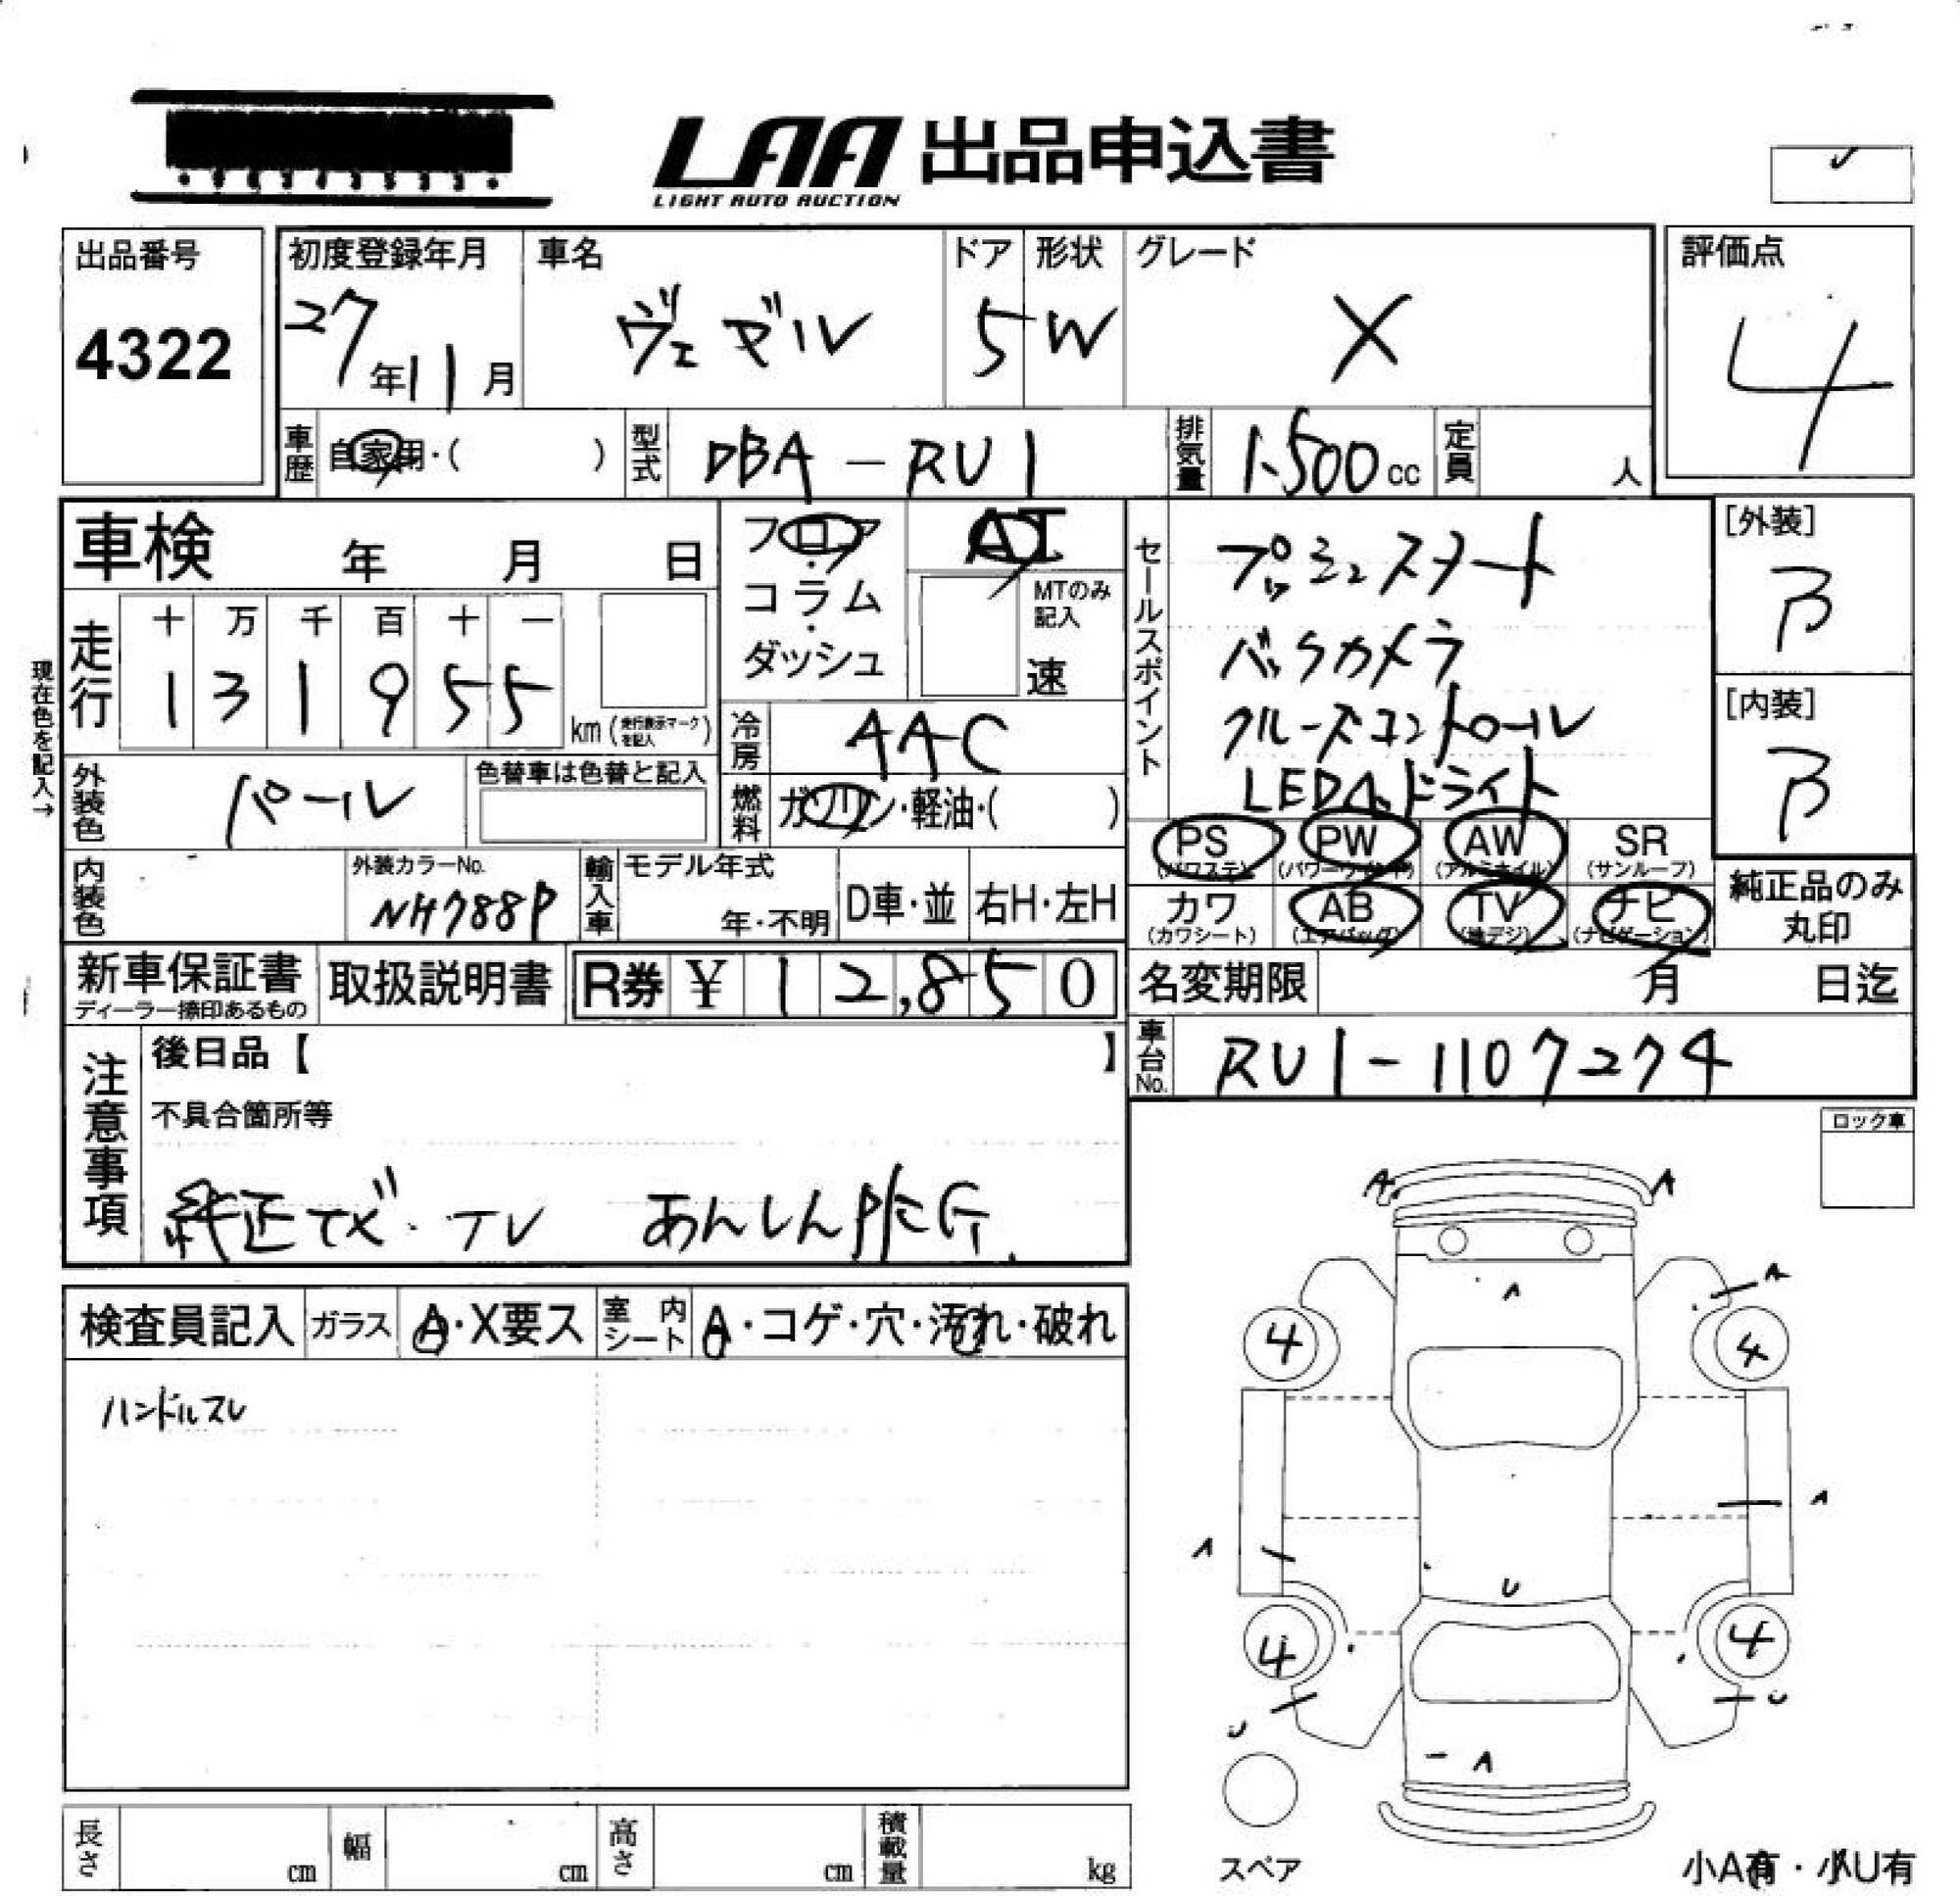 LAA 出品申込書
LIGHT AUTO AUCTION
出品番号
4322
初度登録年月
27年11月
車名
ヴェゼル
ドア
5
形状
W
グレード
X
評価点
4
車歴
自家用・( )
型式
DBA-RU1
排気量
1,500cc
定員
人
車検 年 月 日
フロア
・
コラム
・
ダッシュ
AT
MTのみ
記入
速
セールスポイント
プッシュスタート
バックカメラ
クルーズコントロール
LEDヘッドライト
[外装]
B
[内装]
B
現在色を記入→
走行
十 万 千 百 十 一
1 3 1 9 5 5
km(走行表示マークを記入)
冷房
AAC
外装色
パール
色替車は色替と記入
燃料
ガソリン・軽油・( )
PS
(パワステ)
PW
(パワーウインド)
AW
(アルミホイル)
SR
(サンルーフ)
内装色
外装カラーNo.
NH788P
輸入車
モデル年式
年・不明
D車・並
右H・左H
カワ
(カワシート)
AB
(エアバッグ)
TV
(地デジ)
ナビ
(ナビゲーション)
純正品のみ
丸印
新車保証書
ディーラー捺印あるもの
取扱説明書
R券 ¥ 12,850
名変期限 月 日迄
車台No.
RU1-1107274
注意事項
後日品【 】
不具合箇所等
純正ナビ・TV あんしんPKG.
ロック車
検査員記入
ガラス
A・X要ス
室内シート
A・コゲ・穴・汚れ・破れ
ハンドルスレ
A A
A
A
4 4
A
A
U
4 4
U
U
A
スペア
小A有・小U有
長さ cm
幅 cm
高さ cm
積載量 kg